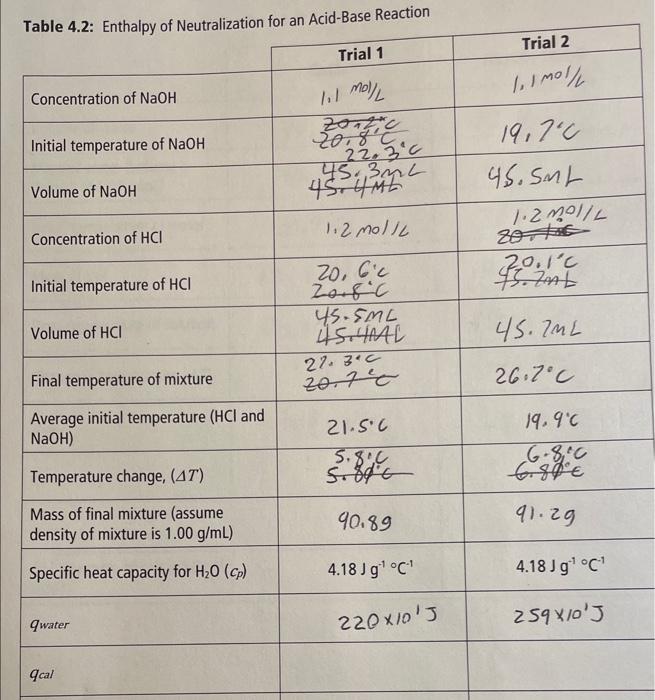 Table 4.2: Enthalpy of Neutralization for an Acid-Base Reaction
Trial 1 Trial 2
Concentration of NaOH 1.1 mol/L 1.1 mol/L
20.2°C
Initial temperature of NaOH 20.8°C 19.7°C
22.3°C
45.3mL
Volume of NaOH 45.4mL 45.5mL
Concentration of HCl 1.2 mol/L 1.2 mol/L
Initial temperature of HCl 20.6°C 20.1°C
20.8°C 45.7mL
45.5mL
Volume of HCl 45.4mL 45.7mL
27.3°C
Final temperature of mixture 20.7°C 26.7°C
Average initial temperature (HCl and
NaOH) 21.5°C 19.9°C
5.8°C 6.8°C
Temperature change, (ΔT) 5.80°C 6.80°C
Mass of final mixture (assume
density of mixture is 1.00 g/mL) 90.8g 91.2g
Specific heat capacity for H₂O (cₚ) 4.18 J g⁻¹ °C⁻¹ 4.18 J g⁻¹ °C⁻¹
qwater 220x10¹J 259x10¹J
qcal